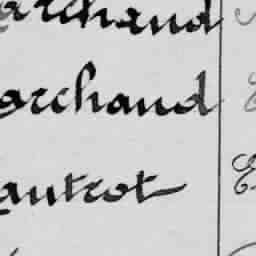 archand
archand
autrot E